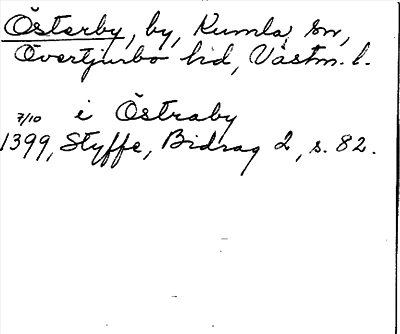 Österby, by, Kumla sn,
Övertjurbo hd, Västm. l.
7/10 i Östraby
1399, Styffe, Bidrag 2, s. 82.